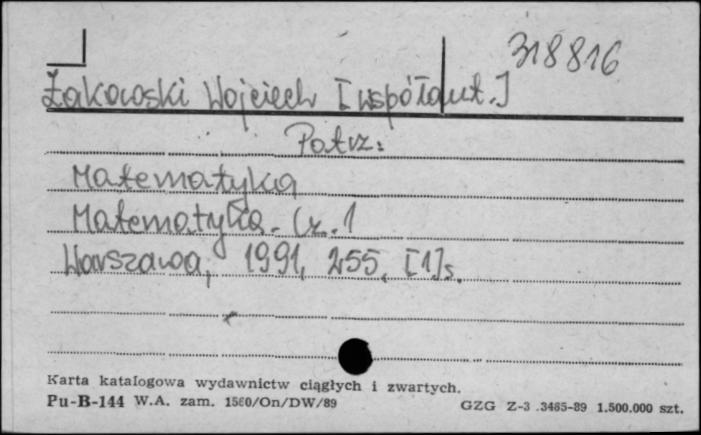 318816
Żakowski Wojciech [współaut.]
Patrz:
Matematyka
Matematyka. Cz. 1
Warszawa, 1991, 255, [1] s.
Karta katalogowa wydawnictw ciągłych i zwartych.
Pu-B-144 W.A. zam. 1560/On/DW/89 GZG Z-3 .3485-89 1.500.000 szt.